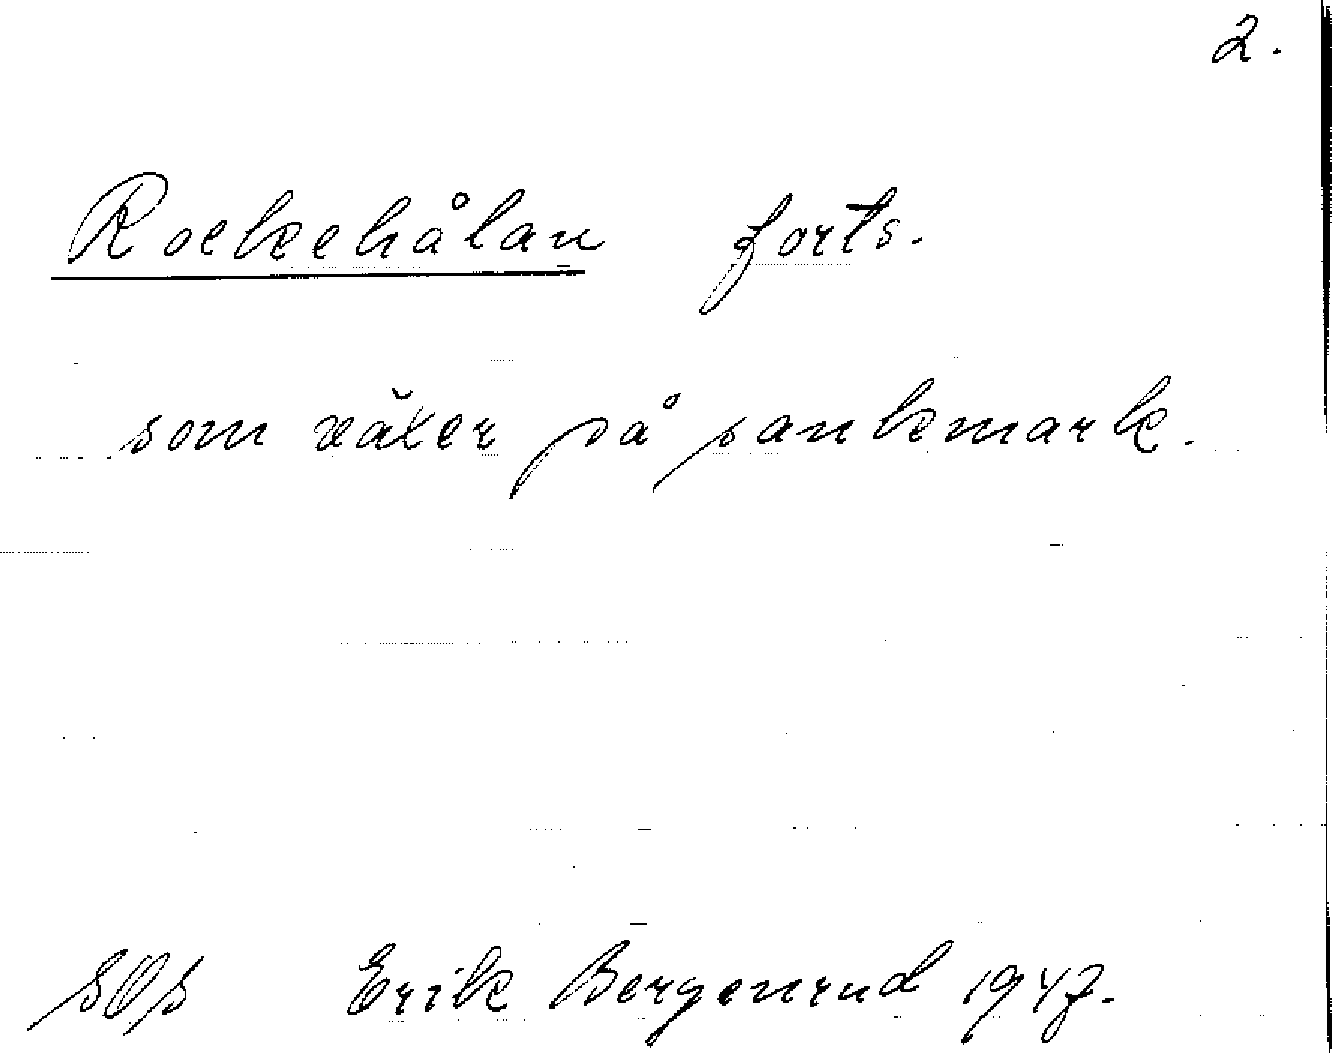 2.
Rockehålan forts.
som växer på sankmark.
SOS Erik Bergenrud 1947.